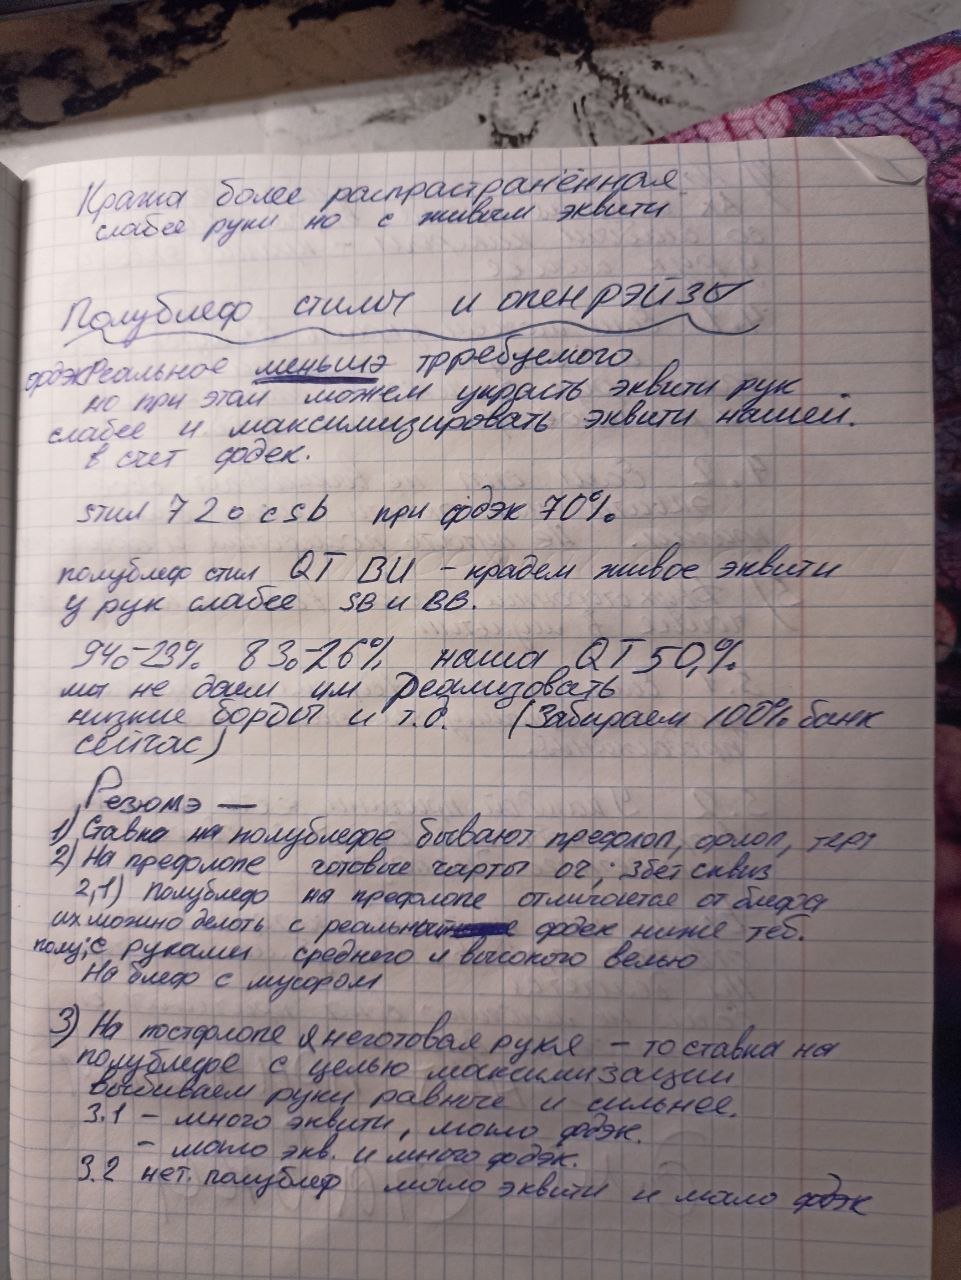 Кража более распространённая
слабее руки но с живым эквити
Полублеф стилы и опенрэйзы
фдэк Реальное меньшэ трребуемого
но при этом можем украсть эквити рук
слабее и максимизировать эквити нашей.
в счет фдек.
стил 72о с sb при фдэк 70%.
полублеф стил QT BU - крадем живое эквити
у рук слабее SB и BB.
94о-29% 83о-26% наша QT 50,%.
мы не даем им реализовать
низкие борды и т.д. (Забираем 100% банк
сейчас)
Резюмэ —
1) Ставка на полублефе бывают префлоп, флоп, терн
2) На префлопе готовые чарты ог; 3бет сквиз
2,1) Полублеф на префлопе отличается от блефа
их можно делоть с реальной фдек ниже теб.
полу; с руками среднего и высокого велью
На блеф с мусором
3) На постфлопе я неготовая рука – то ставка на
полублефе с целью максимизации
выбиваем руки равные и сильнее.
3.1 – много эквити, мало фдэк.
– мало экв. и много фдэк.
3.2 нет. полублеф мало эквити и мало фдэк